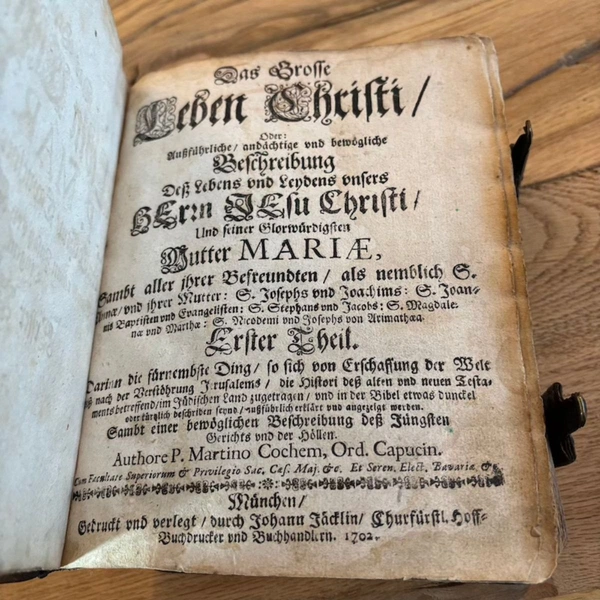 Das Grosse
Leben Christi /
Oder:
Außführliche / andächtige vnd bewögliche
Beschreibung
Deß Lebens vnd Leydens vnsers
HErrn JEsu Christi /
Und seiner Glorwürdigsten
Mutter MARIÆ,
Sambt aller jhrer Befreundten / als nemblich S.
Annæ / vnd jhrer Mutter: S. Josephs vnd Joachims: S. Joan-
nis Baptisten vnd Evangelisten: S. Stephans vnd Jacobs: S. Magdale-
næ vnd Marthæ: S. Nicodemi vnd Josephs von Arimathæa.
Erster Theil.
Darinn die fürnembste Ding / so sich von Erschaffung der Welt
biß nach der Verstöhrung Jerusalems / die Histori deß alten vnd neuen Testa-
ments betreffend / im Jüdischen Land zugetragen / vnd in der Bibel etwas dunckel
oder kürtzlich beschriben seynd / außführlich erklärt vnd angezeigt werden.
Sambt einer bewöglichen Beschreibung deß Jüngsten
Gerichts vnd der Höllen.
Authore P. Martino Cochem, Ord. Capucin.
Cum Facultate Superiorum & Privilegio Sac. Cæs. Maj. &c. Et Seren. Elect. Bavariæ &c.
München /
Gedruckt vnd verlegt / durch Johann Jäcklin / Churfürstl. Hoff-
Buchdrucker vnd Buchhandlern. 1702.